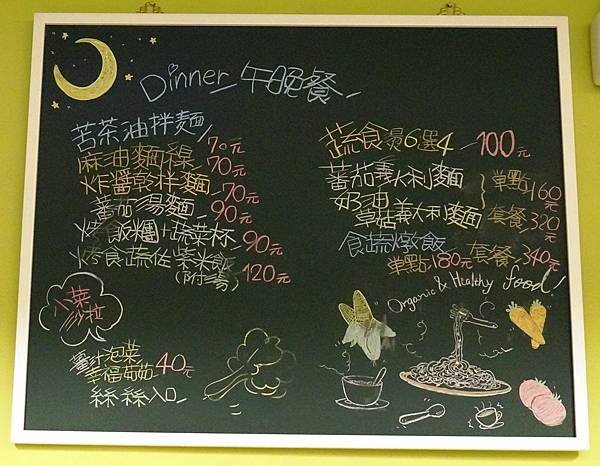 Dinner 午晚餐
苦茶油拌麵 70元
麻油麵線 70元
炸醬乾拌麵 70元
蕃茄湯麵 90元
烤飯糰+蔬菜杯 90元
烤食蔬佐紫米飯 120元
(附湯)
小菜
沙拉
薑汁泡菜 40元
幸福菇菇
絲絲入口
蔬食燙6選4 100元
蕃茄義大利麵 單點160元
奶油
草菇義大利麵 套餐320元
食蔬燉飯
單點180元 套餐340元
Organic & Healthy food!